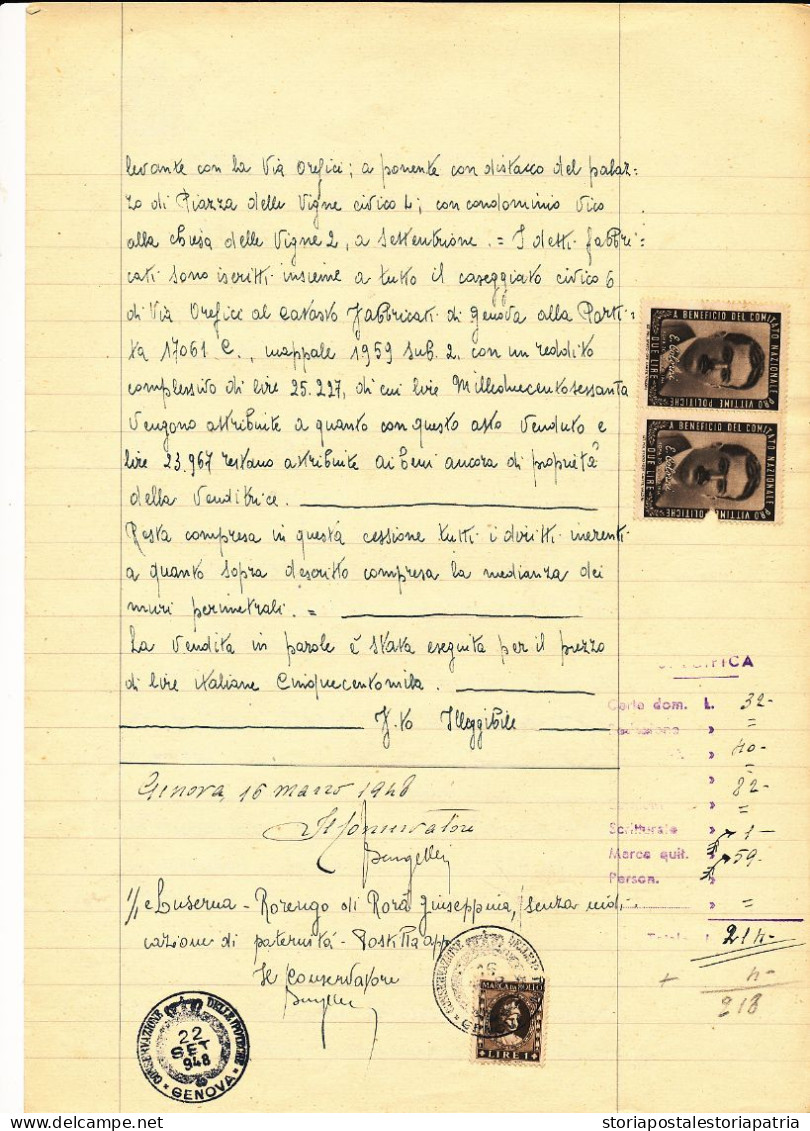 levante con la Via Orefici; a ponente con distacco del palaz-
zo di Piazza delle Vigne civico 4; con condominio Vico
alla chiesa delle Vigne 2, a settentrione. = I detti fabbri-
cati sono iscritti insieme a tutto il caseggiato civico 6
di Via Orefici al catasto Fabbricati di Genova alla Parti-
ta 17061 C., mappale 1959 sub. 2. con un reddito
complessivo di lire 25.227, di cui lire Milleduecentosessanta
vengono attribuite a quanto con questo atto venduto e
lire 23.967 restano attribuite ai beni ancora di proprietà
della Venditrice.
Resta compresa in questa cessione tutti i diritti inerenti
a quanto sopra descritto compresa la medianza dei
muri perimetrali. =
La Vendita in parole è stata eseguita per il prezzo
di lire italiane Cinquecentomila.
F.to Illeggibile
Genova, 16 marzo 1948
Il Conservatore
1/ e Luserna - Rorengo di Rorà Giuseppina, / senza indi-
cazione di paternità - Postilla app
Il Conservatore
CONSERVAZIONE DELLE IPOTECHE
22
SET
948
GENOVA
CONSERVAZIONE DELLE
16
MARCA DA BOLLO
LIRE 1
A BENEFICIO DEL COMITATO NAZIONALE
PRO VITTIME POLITICHE
DUE LIRE
A BENEFICIO DEL COMITATO NAZIONALE
PRO VITTIME POLITICHE
DUE LIRE
SPECIFICA
Carta dom. L. 32-
» =
» 40-
=
» 82-
=
Scritturato » 1-
Marca quit. » 59-
Person. »
» =
214-
+ 4-
218
storiapostalestoriapatria